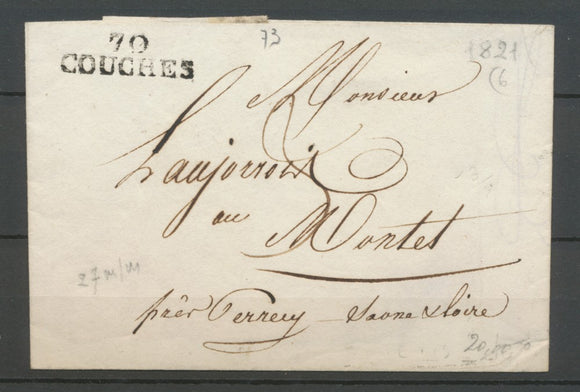 70
COUCHES
73
1821
(6
Monsieur
Laujorrois
au
Montet
27 m/m
près Perrecy Saone & loire
20